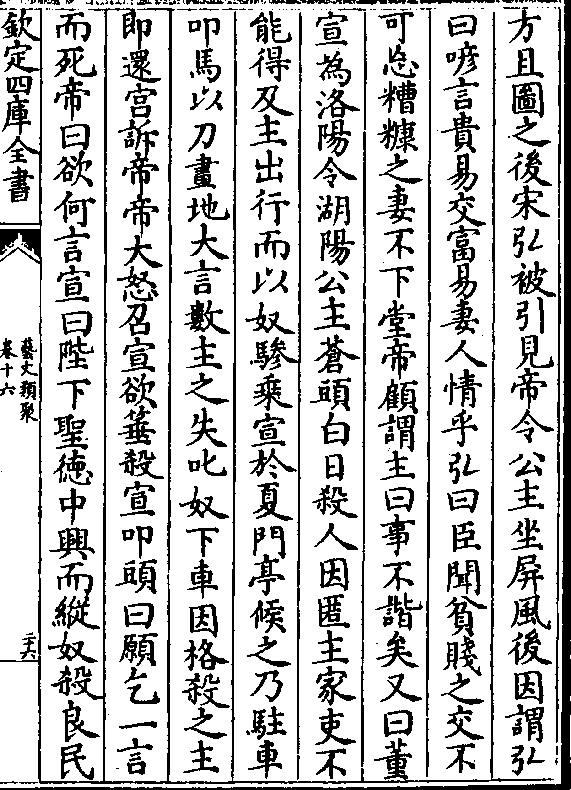 方且圖之後宋弘被引見帝令公主坐屏風後因謂弘
曰喭言貴易交富易妻人情乎弘曰臣聞貧賤之交不
可忘糟糠之妻不下堂帝顧謂主曰事不諧矣又曰董
宣為洛陽令湖陽公主蒼頭白日殺人因匿主家吏不
能得及主出行而以奴驂乘宣於夏門亭候之乃駐車
叩馬以刀畫地大言數主之失叱奴下車因格殺之主
即還宮訴帝帝大怒召宣欲箠殺宣叩頭曰願乞一言
而死帝曰欲何言宣曰陛下聖徳中興而縱奴殺良民
欽定四庫全書
藝文類聚
卷十六
二六